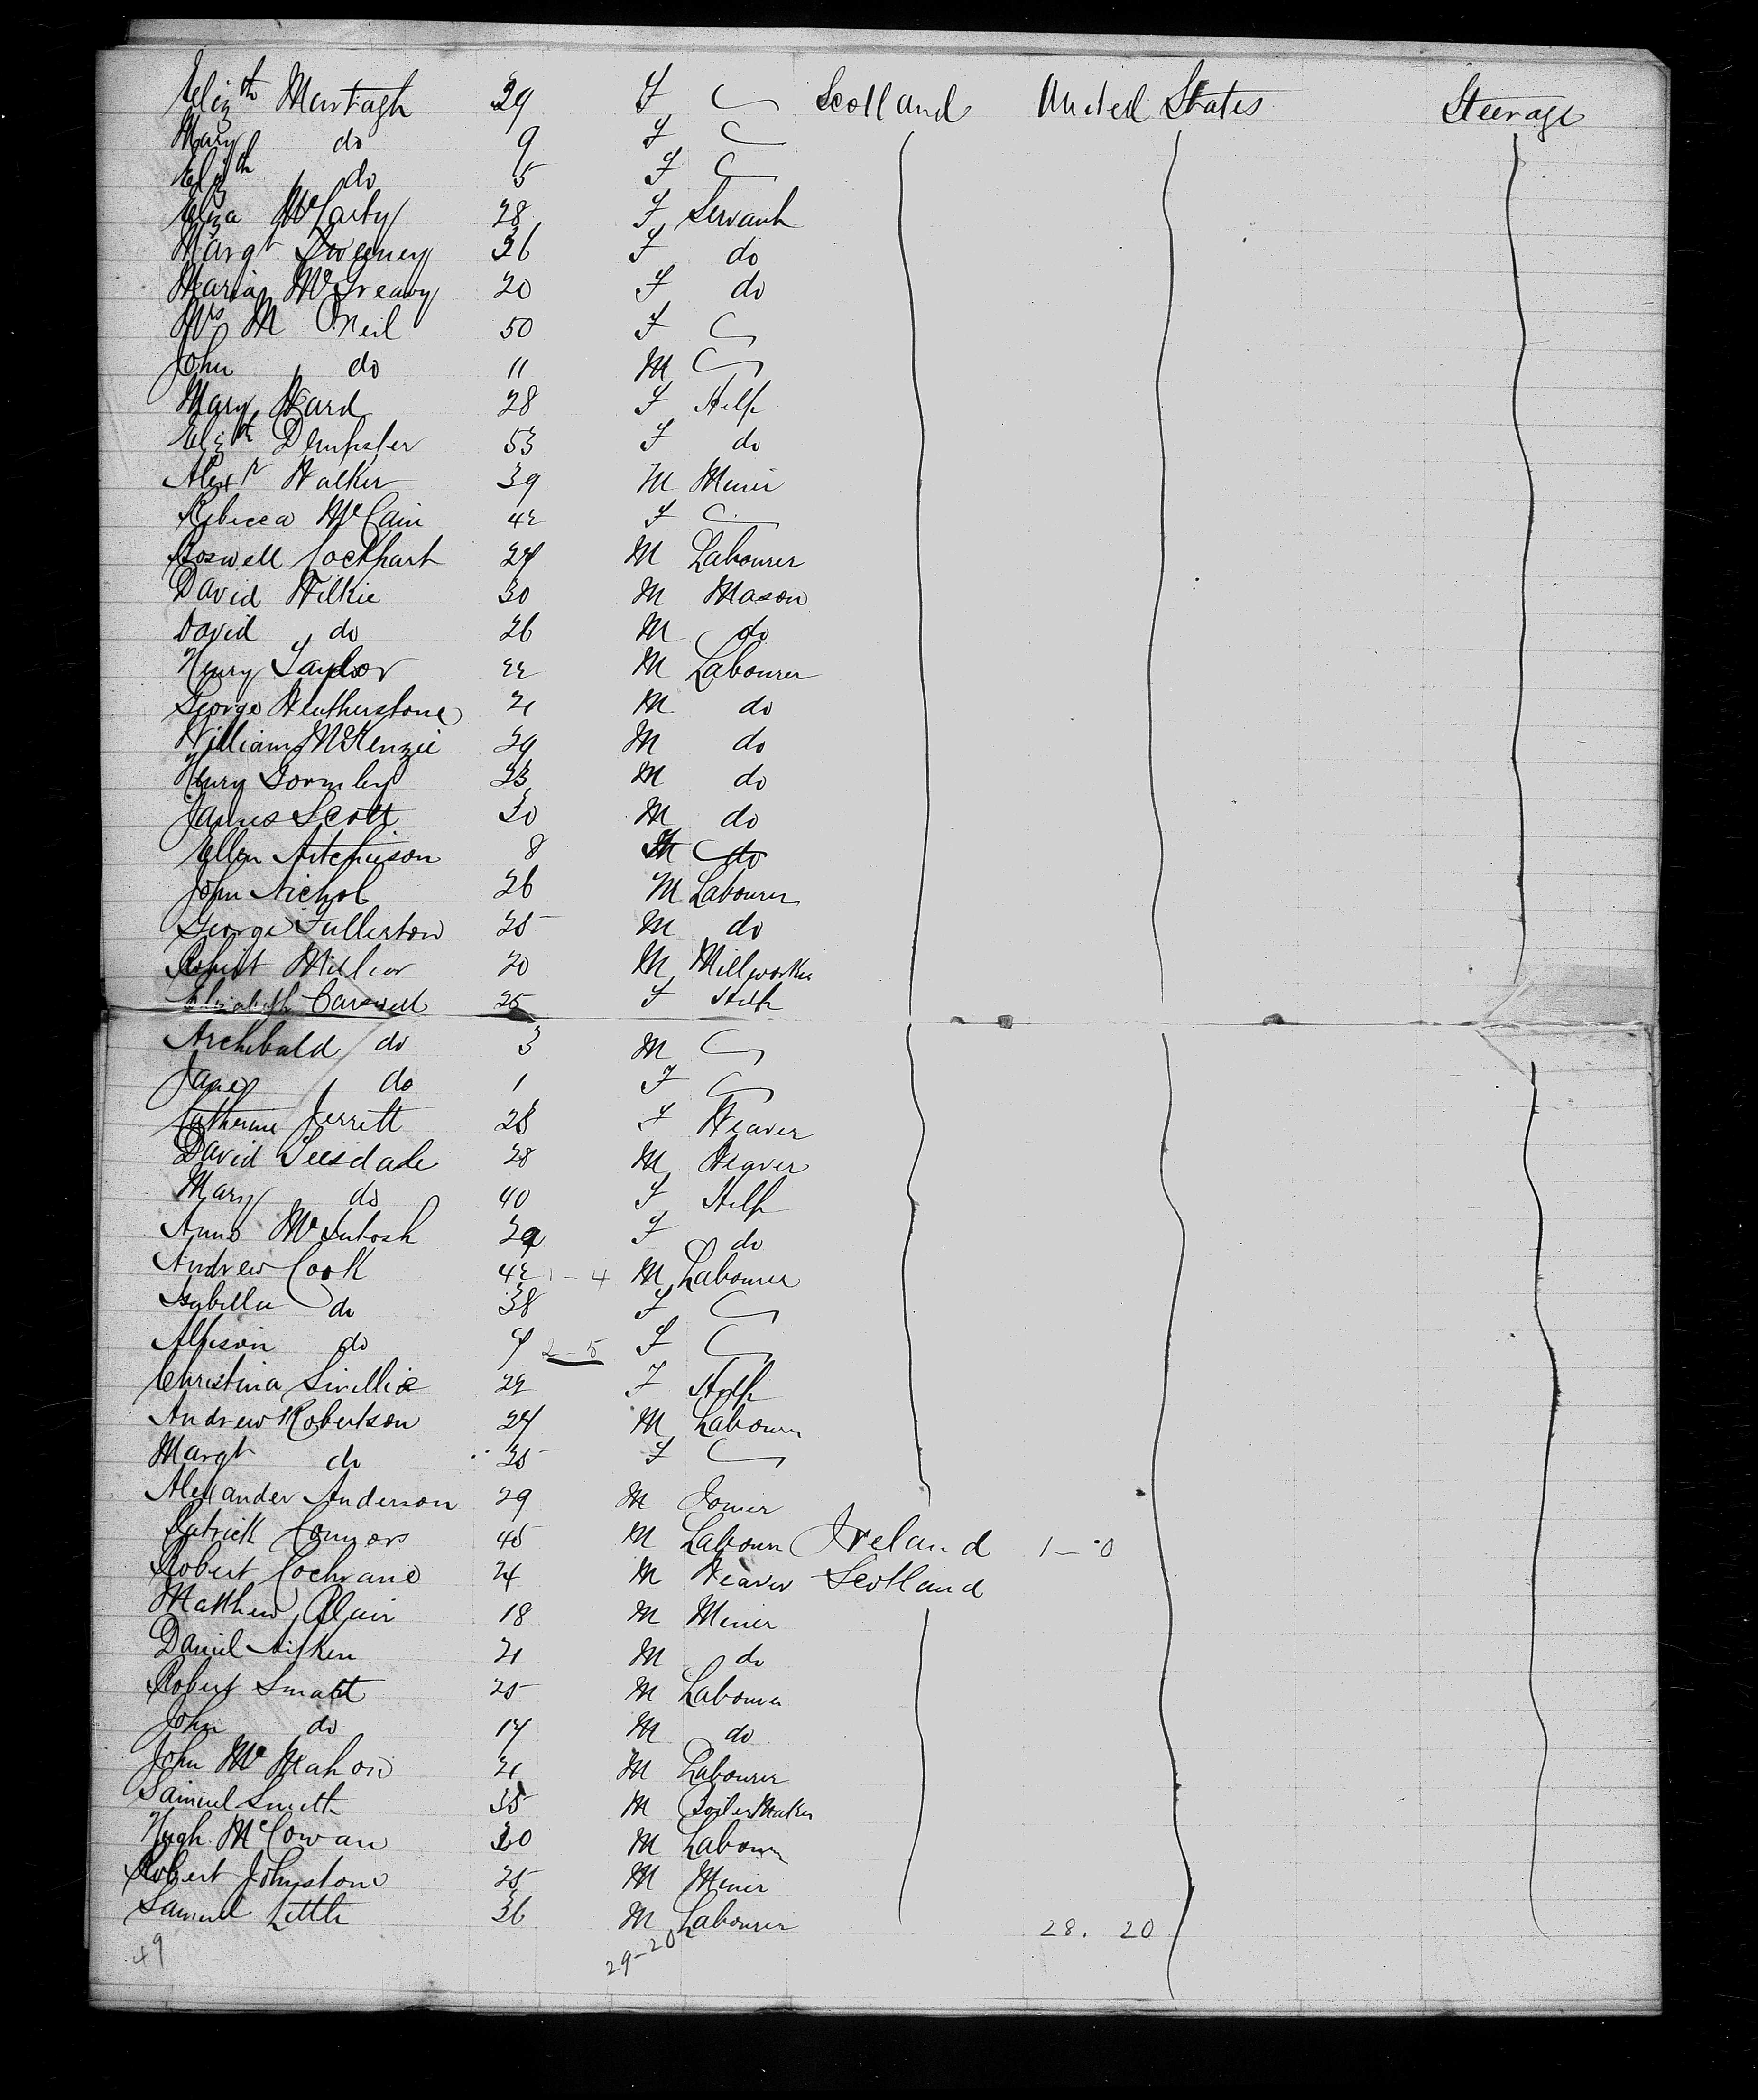 Elizth Murtagh 29 F Scotland United States Steerage
Mary do 9 F
Elizth do 5 F
Eliza McCarty 28 F Servant
Margt Sweeney 36 F do
Maria McGreavy 20 F do
Mrs M ONeil 50 F
John do 11 M
Mary Ward 28 F Help
Elizth Dempster 53 F do
Alexr Walker 39 M Miner
Rebecca McCain 42 F
Boswell Lockhart 24 M Labourer
David Wilkie 30 M Mason
David do 26 M do
Henry Taylor 22 M Labourer
George Weatherstone 21 M do
William McKenzie 29 M do
Henry Gormley 23 M do
James Scott 30 M do
Ellen Aitchison 8 do
John Nichol 26 M Labourer
George Fullerton 25 M do
Robert Millar 20 M Millworker
Elizabeth Carswell 25 F Help
Archibald do 3 M
Jane do 1 F
Catherine Jerrett 23 F Weaver
David Teesdale 38 M Weaver
Mary do 40 F Help
Anne McIntosh 39 F do
Andrew Cook 42 1-4 M Labourer
Isabella do 38 F
Alison do 4 2-5 F
Christina 22 F Help
Andrew Robertson 24 M Labourer
Margt do 25 F
Alexander Anderson 29 M Joiner
Patrick Connors 45 M Labourer Ireland 1-0
Robert Cochrane 24 M Weaver Scotland
Matthew Blair 18 M Miner
Daniel Aitken 21 M do
Robert Smart 25 M Labourer
John do 14 M do
John McMahon 21 M Labourer
Samuel Smith 35 M Boiler Maker
Hugh McCowan 20 M Labourer
Robert Johnstone 25 M Miner
Samuel Little 36 M Labourer
28. 20
49 29-20